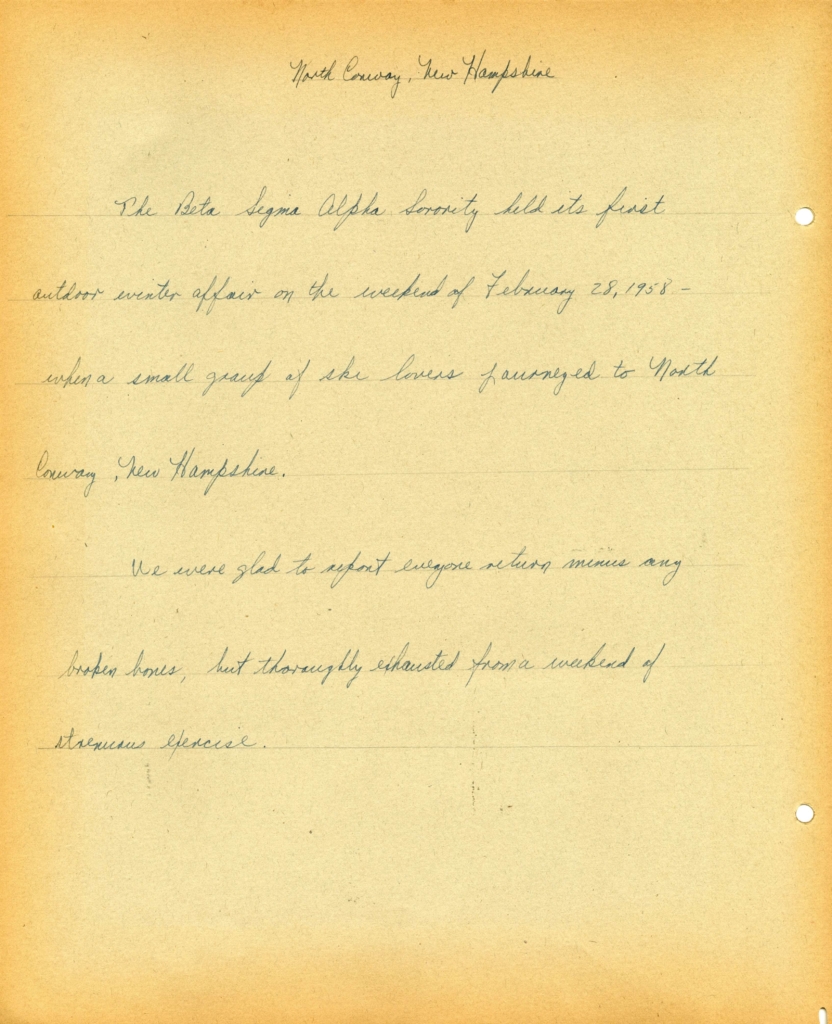 North Conway, New Hampshire
The Beta Sigma Alpha Sorority held its first
outdoor winter affair on the weekend of February 28, 1958 -
when a small group of ski lovers journeyed to North
Conway, New Hampshire.
We were glad to report everyone return minus any
broken bones, but thoroughly exhausted from a weekend of
strenuous exercise.